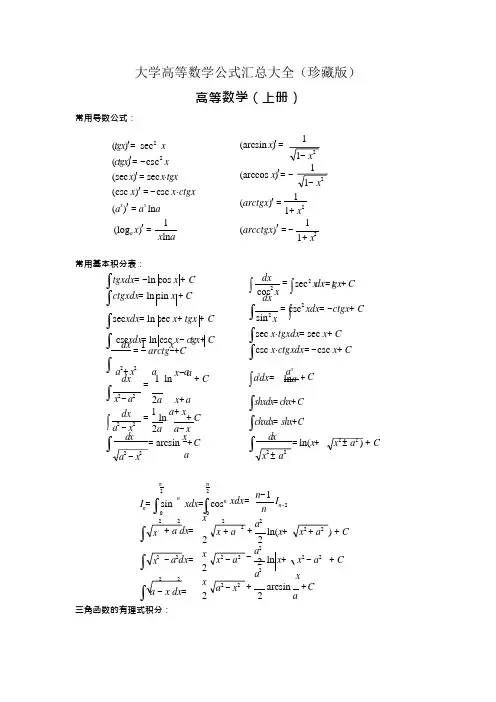 大学高等数学公式汇总大全（珍藏版）
高等数学（上册）
常用导数公式：
(tgx)′= sec² x
(ctgx)′= −csc² x
(sec x)′= sec x·tgx
(csc x)′= −csc x·ctgx
(aˣ)′= aˣ ln a
(logₐ x)′= 1/(x ln a)
(arcsin x)′= 1/√(1− x²)
(arccos x)′= − 1/√(1− x²)
(arctgx)′= 1/(1+ x²)
(arcctgx)′= − 1/(1+ x²)
常用基本积分表：
∫tgxdx= −ln|cos x|+ C
∫ctgxdx= ln|sin x|+ C
∫secxdx= ln|sec x+ tgx|+ C
∫cscxdx= ln|csc x− ctgx|+ C
∫dx/(a²+ x²) = 1/a arctg x/a +C
∫dx/(x²− a²) = 1/2a ln|(x−a)/(x+a)| + C
∫dx/(a²− x²) = 1/2a ln (a+ x)/(a− x) + C
∫dx/√(a²− x²) = arcsin x/a +C
∫dx/cos² x = ∫sec² xdx= tgx+ C
∫dx/sin² x = ∫csc² xdx= −ctgx+ C
∫sec x·tgxdx= sec x+ C
∫csc x·ctgxdx= −csc x+ C
∫aˣdx= aˣ/ln a + C
∫shxdx= chx+C
∫chxdx= shx+C
∫dx/√(x²± a²) = ln(x+ √(x²± a²)) + C
Iₙ= ∫₀^(π/2) sinⁿ xdx= ∫₀^(π/2) cosⁿ xdx= (n−1)/n Iₙ₋₂
∫√(x²+ a²)dx= x/2 √(x²+ a²) + a²/2 ln(x+ √(x²+ a²)) + C
∫√(x²− a²)dx= x/2 √(x²− a²) − a²/2 ln|x+ √(x²− a²)| + C
∫√(a²− x²)dx= x/2 √(a²− x²) + a²/2 arcsin x/a +C
三角函数的有理式积分：